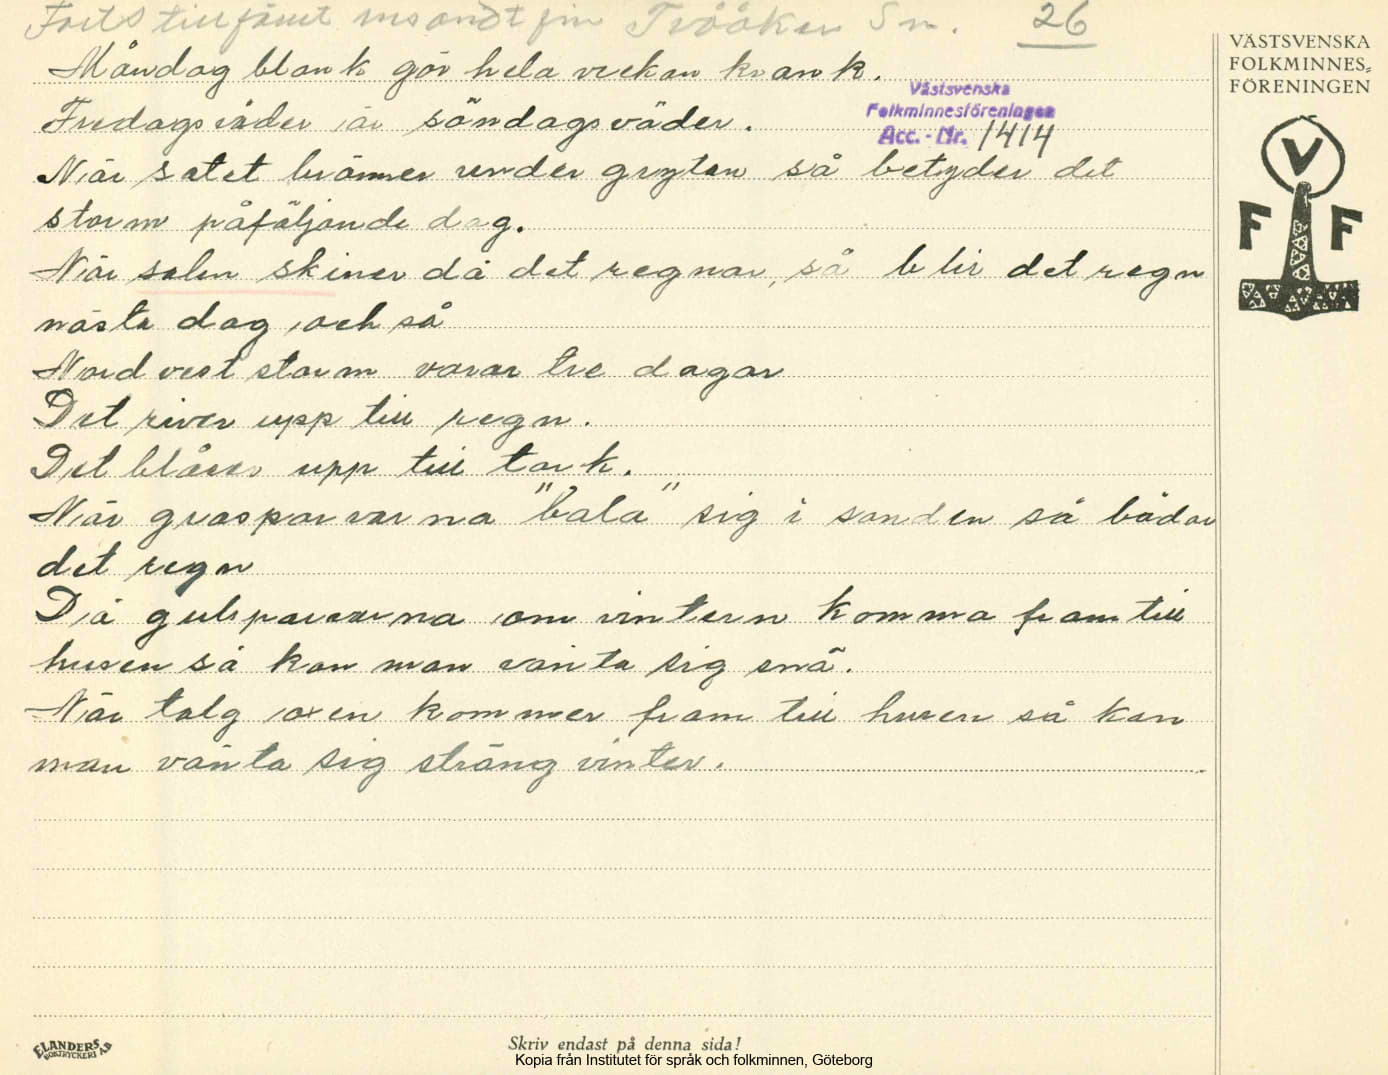 Forts tillfämt insändt från Tvååker Sn. 26
Måndag blank gör hela veckan krank.
Fredagsväder är söndagsväder.
När sotet bränner under grytan så betyder det
storm påföljande dag.
När solen skiner då det regnar, så blir det regn
nästa dag och så
Nordvest storm varar tre dagar
Det river upp till regn.
Det blåser upp till tork.
När gråsparvarna "bala" sig i sanden så bådar
det regn
Då gulsparvarna om vintern komma fram till
husen så kan man vänta sig snö.
När talgoxen kommer fram till husen så kan
man vänta sig sträng vinter.
Västsvenska
Folkminnesföreningen
Acc.-Nr. 1414
VÄSTSVENSKA
FOLKMINNES-
FÖRENINGEN
V
F F
ELANDERS
BOKTRYCKERI AB
Skriv endast på denna sida!
Kopia från Institutet för språk och folkminnen, Göteborg